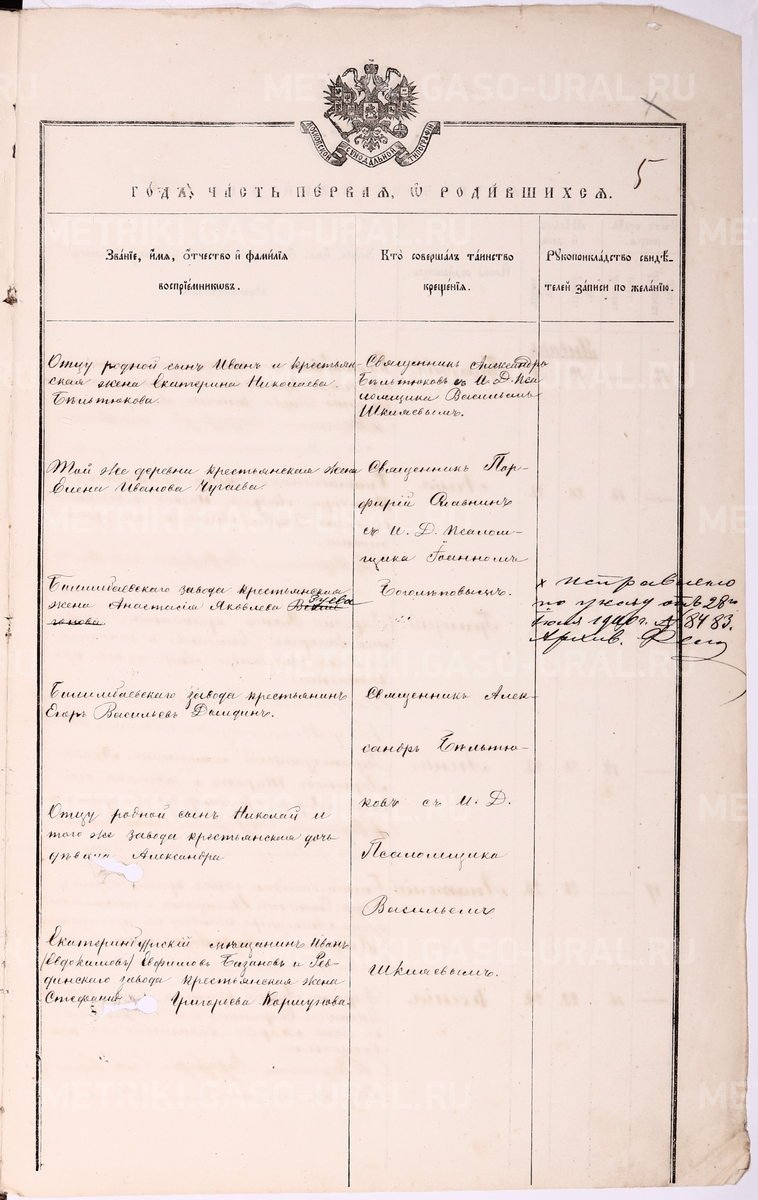 МОСКОВСКОЙ СѴНОДАЛЬНОЙ ТИПОГРАФІИ
5
ГОДА, ЧАСТЬ ПЕРВАЯ, Ѿ РОДИВШИХСЯ.
Званіе, имя, отчество и фамилія
воспріемниковъ.
Кто совершалъ таинство
крещенія.
Рукоприкладство свидѣ-
телей записи по желанію.
Отцу родной сынъ Иванъ и крестьян-
ская жена Екатерина Николаева
Бѣльтюкова.
Священникъ Александръ
Бѣльтюковъ съ И. Д. Пса-
ломщика Васильемъ
Шкляевымъ.
Той же деревни крестьянская жена
Елена Иванова Чугаева.
Священникъ Пор-
фирій Славнинъ
съ И. Д. псалом-
щика Іоанномъ
Боголѣповымъ.
Билимбаевскаго завода крестьянская
жена Анастасія Яковлева
х исправлено
по указу отъ 28го
1910 г. № 8483.
Билимбаевскаго завода крестьянинъ
Егоръ Васильевъ
Священникъ Алек-
сандръ Бѣльтю-
ковъ съ И. Д.
Псаломщика
Васильемъ
Шкляевымъ.
Отцу родной сынъ Николай и
того же завода крестьянская дочь
дѣвица Александра
Екатеринбургскій мѣщанинъ Иванъ
/Евдокимовъ/ Евфимовъ Базановъ и Рев-
динскаго завода крестьянская жена
Григорьева Коршунова.
METRIKI.GASO-URAL.RU